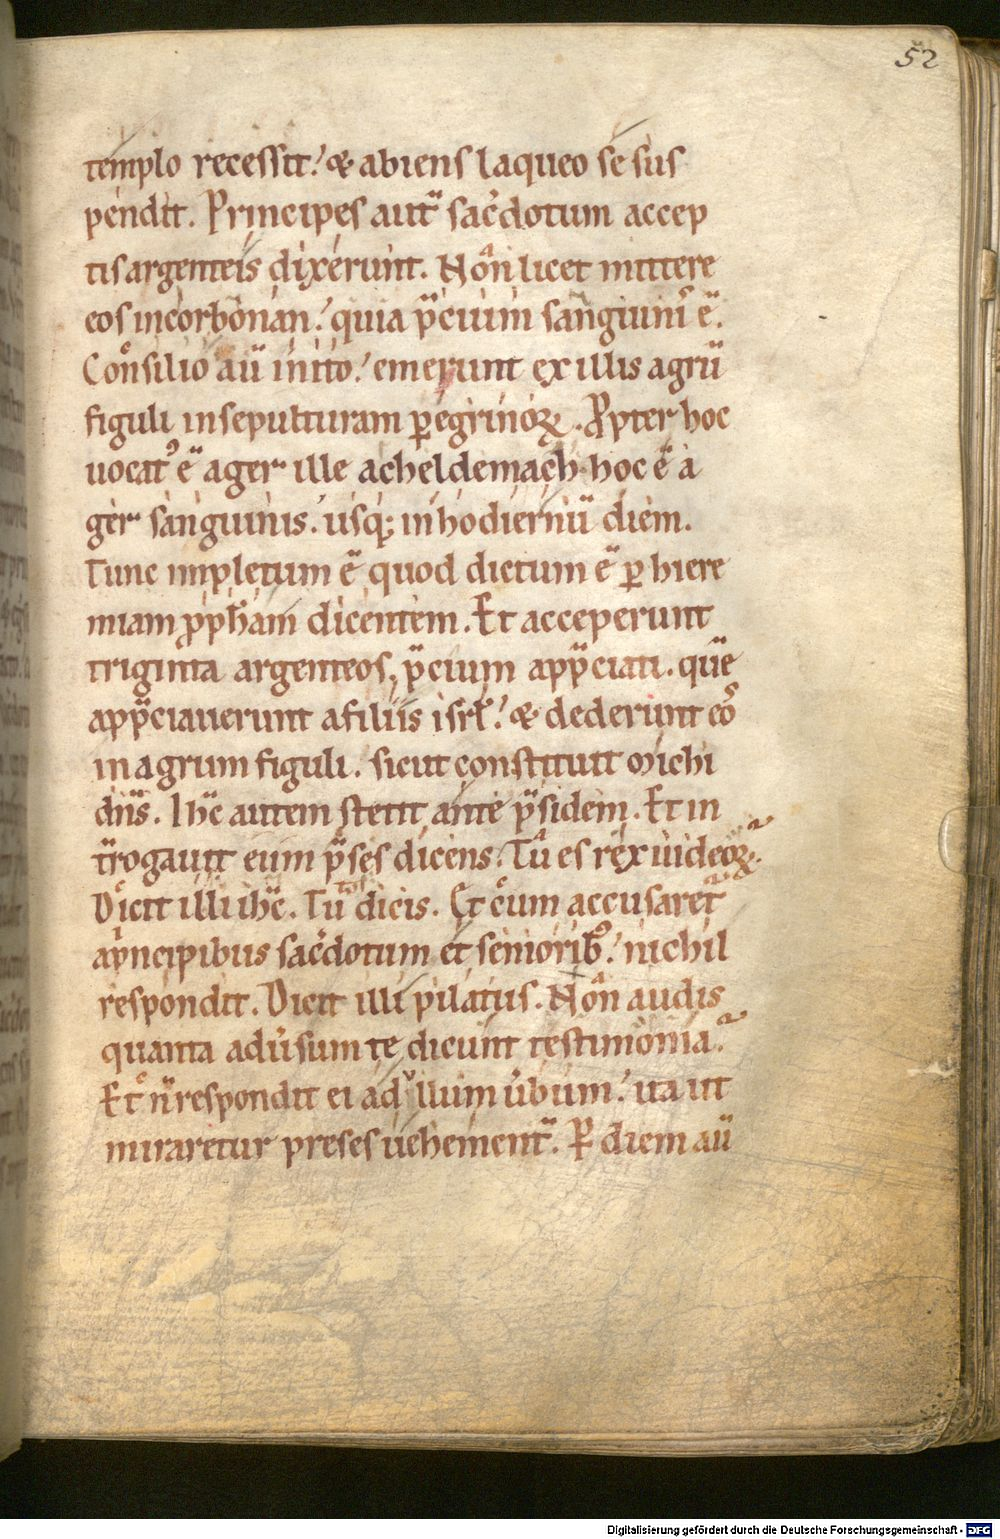 52
templo recessit. & abiens laqueo se sus
pendit. Principes aut̄ sac̄dotum accep
tis argenteis dixerunt. Nōn licet mittere
eos incorbonan. quia p̄cium sanguiniſ ē.
Consilio aū inito. emerunt ex illis agrū
figuli insepulturam ꝑegrinoꝝ. ꝓpter hoc
uocatꝰ ē ager ille acheldemach. hoc ē a
ger sanguinis. usq; inhodiernū diem.
Tunc impletum ē quod dictum ē ꝑ hiere
miam ꝓph̄am dicentem. Et acceperunt
triginta argenteos, p̄cium app̄ciati. quē
app̄ciauerunt afiliis isrł. & dederunt eoſ
inagrum figuli. sicut constituit michi
dn̄s. Ihc̄ autem stetit ante p̄sidem. Et in
t̄rogauit eum p̄ses dicens. Tu es rex iudeoꝝ.
Dicit illi ihc̄. Tu dicis. Et cum accusaret᷑
ap̄ncipibus sac̄dotum et senioribꝰ. nichil
respondit. Dicit illi pilatus. Non audis
quanta adu̓sum te dicunt testimonia.
Et n̄ respondit ei ad ullum u̓bum. ita ut
miraretur preses uehement̄. P̱ diem aū
Digitalisierung gefördert durch die Deutsche Forschungsgemeinschaft - DFG